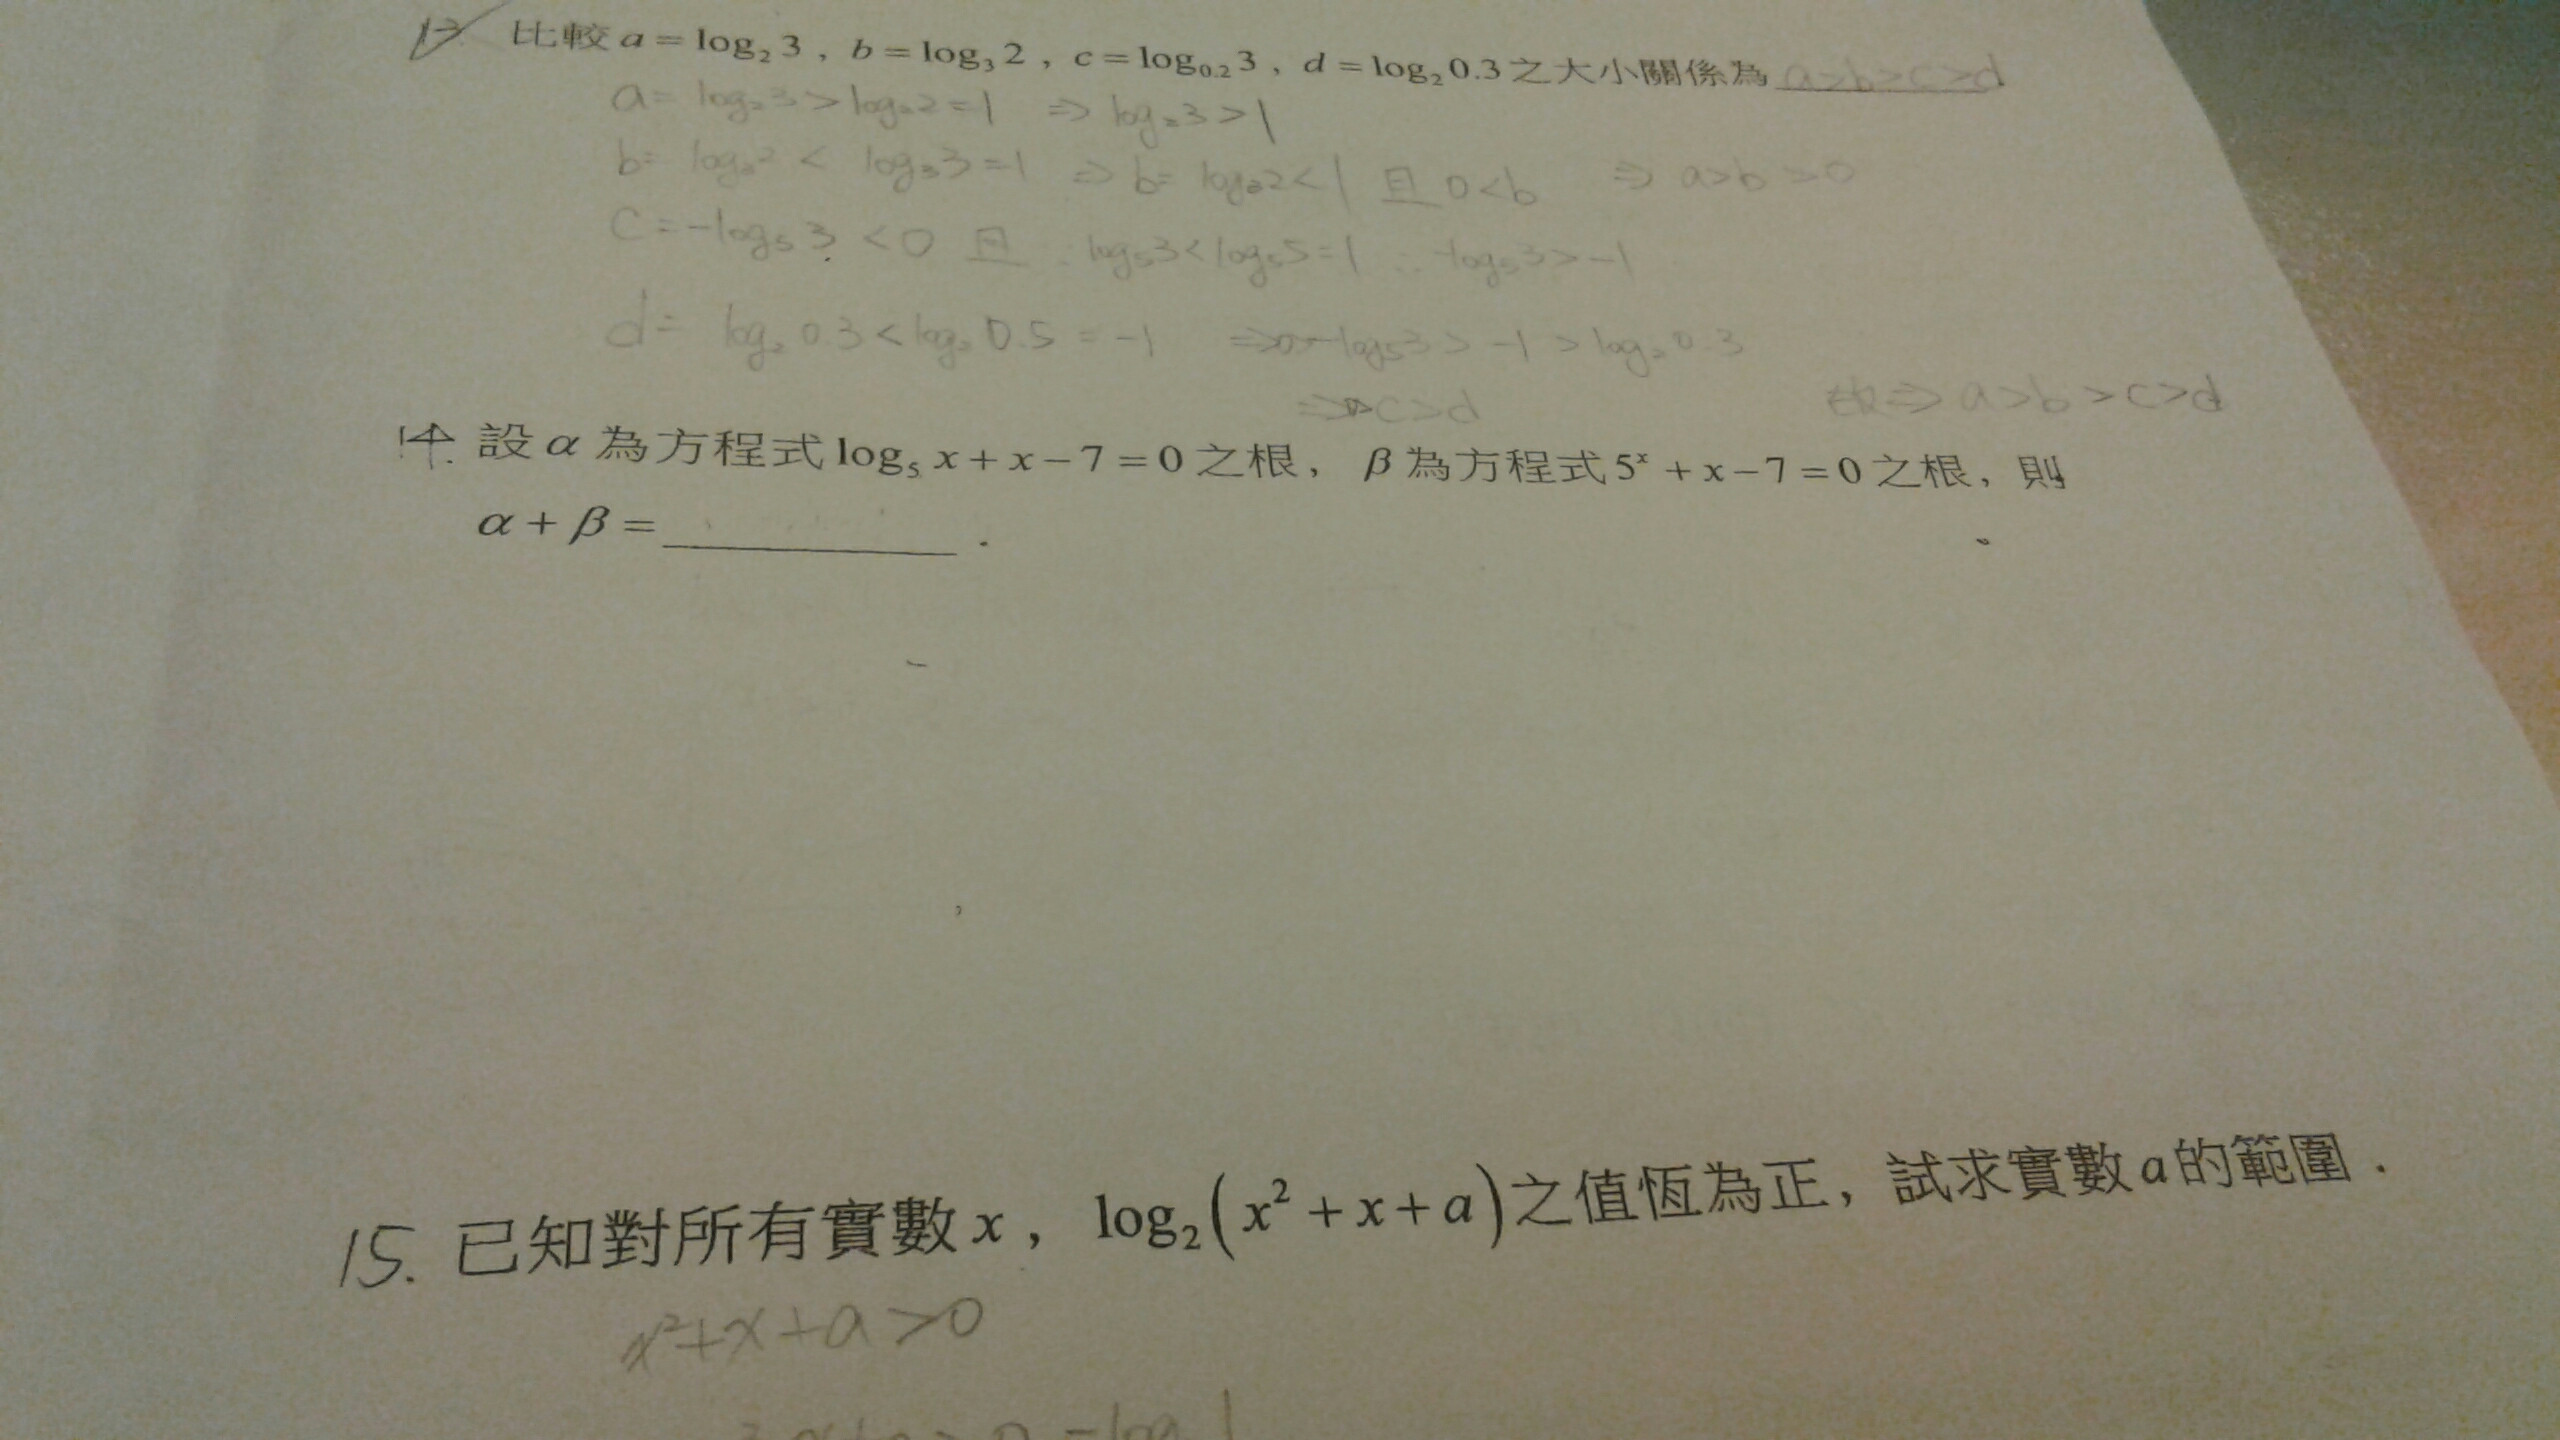 13 比較 a = log₂ 3 , b = log₃ 2 , c = log₀.₂ 3 , d = log₂ 0.3 之大小關係為 a>b>c>d
a = log₂3 > log₂2 = 1 ⇒ log₂3 > 1
b = log₃2 < log₃3 = 1 ⇒ b = log₃2 < 1 且 0<b ⇒ a>b>0
C = -log₅3 < 0 且 log₅3 < log₅5 = 1 ∴ -log₅3 > -1
d = log₂ 0.3 < log₂ 0.5 = -1 ⇒ -log₅3 > -1 > log₂ 0.3
⇒ c>d 故⇒ a>b>c>d
14. 設 α 為方程式 log₅ x + x − 7 = 0 之根, β 為方程式 5ˣ + x − 7 = 0 之根, 則
α + β = ________ .
15. 已知對所有實數 x , log₂(x² + x + a) 之值恆為正, 試求實數 a 的範圍 .
x²+x+a>0